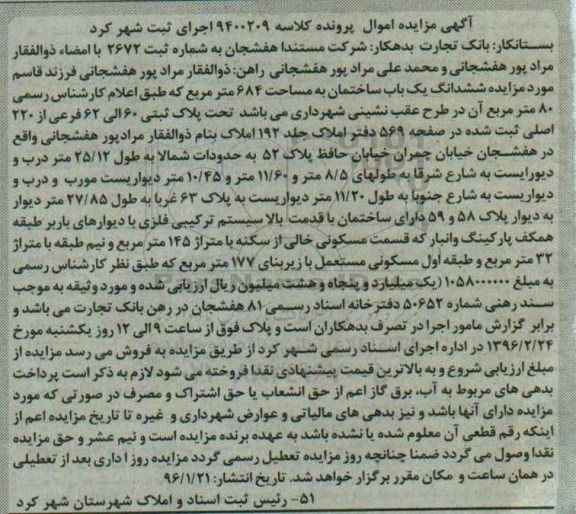 آگهی مزایده اموال پرونده کلاسه ۹۴۰۰۲۰۹ اجرای ثبت شهر کرد
بستانکار: بانک تجارت بدهکار: شرکت مستندا هفشجان به شماره ثبت ۲۶۷۲ با امضاء ذوالفقار
مراد پور هفشجانی و محمد علی مراد پور هفشجانی راهن: ذوالفقار مراد پور هفشجانی فرزند قاسم
مورد مزایده ششدانگ یک باب ساختمان به مساحت ۶۸۴ متر مربع که طبق اعلام کارشناس رسمی
۸۰ متر مربع آن در طرح عقب نشینی شهرداری می باشد تحت پلاک ثبتی ۶۰ الی ۶۲ فرعی از ۲۲۰
اصلی ثبت شده در صفحه ۵۶۹ دفتر املاک جلد ۱۹۲ املاک بنام ذوالفقار مرادپور هفشجانی واقع
در هفشجان خیابان چمران خیابان حافظ پلاک ۵۲ به حدودات شمالا به طول ۲۵/۱۲ متر درب و
دیورایست به شارع شرقا به طولهای ۸/۵ متر و ۱۱/۶۰ متر و ۱۰/۴۵ متر دیواریست مورب و درب و
دیواریست به شارع جنوبا به طول ۱۱/۲۰ متر دیواریست به پلاک ۶۳ غربا به طول ۲۷/۸۵ متر دیوار
به دیوار پلاک ۵۸ و ۵۹ دارای ساختمان با قدمت بالا سیستم ترکیبی فلزی با دیوارهای باربر طبقه
همکف پارکینگ وانبار که قسمت مسکونی خالی از سکنه با متراژ ۱۴۵ متر مربع و نیم طبقه با متراژ
۳۲ متر مربع و طبقه اول مسکونی مستعمل با زیربنای ۱۷۷ متر مربع که طبق نظر کارشناس رسمی
به مبلغ ۱۰۵۸۰۰۰۰۰۰ (یک میلیارد و پنجاه و هشت میلیون ریال ارزیابی شده و مورد وثیقه به موجب
سند رهنی شماره ۵۰۶۵۲ دفتر خانه اسناد رسمی ۸۱ هفشجان در رهن بانک تجارت می باشد و
برابر گزارش مامور اجرا در تصرف بدهکاران است و پلاک فوق از ساعت ۹ الی ۱۲ روز یکشنبه مورخ
۱۳۹۶/۲/۲۴ در اداره اجرای اسناد رسمی شهر کرد از طریق مزایده به فروش می رسد مزایده از
مبلغ ارزیابی شروع و به بالاترین قیمت پیشنهادی نقدا فروخته می شود لازم به ذکر است پرداخت
بدهی های مربوط به آب، برق گاز اعم از حق انشعاب یا حق اشتراک و مصرف در صورتی که مورد
مزایده دارای آنها باشد و نیز بدهی های مالیاتی و عوارض شهرداری و غیره تا تاریخ مزایده اعم از
اینکه رقم قطعی آن معلوم شده یا نشده باشد به عهده برنده مزایده است و نیم عشر و حق مزایده
نقدا وصول می گردد ضمنا چنانچه روز مزایده تعطیل رسمی گردد مزایده روز اداری بعد از تعطیلی
در همان ساعت و مکان مقرر برگزار خواهد شد. تاریخ انتشار: ۹۶/۱/۲۱
۵۱- رئیس ثبت اسناد و املاک شهرستان شهر کرد